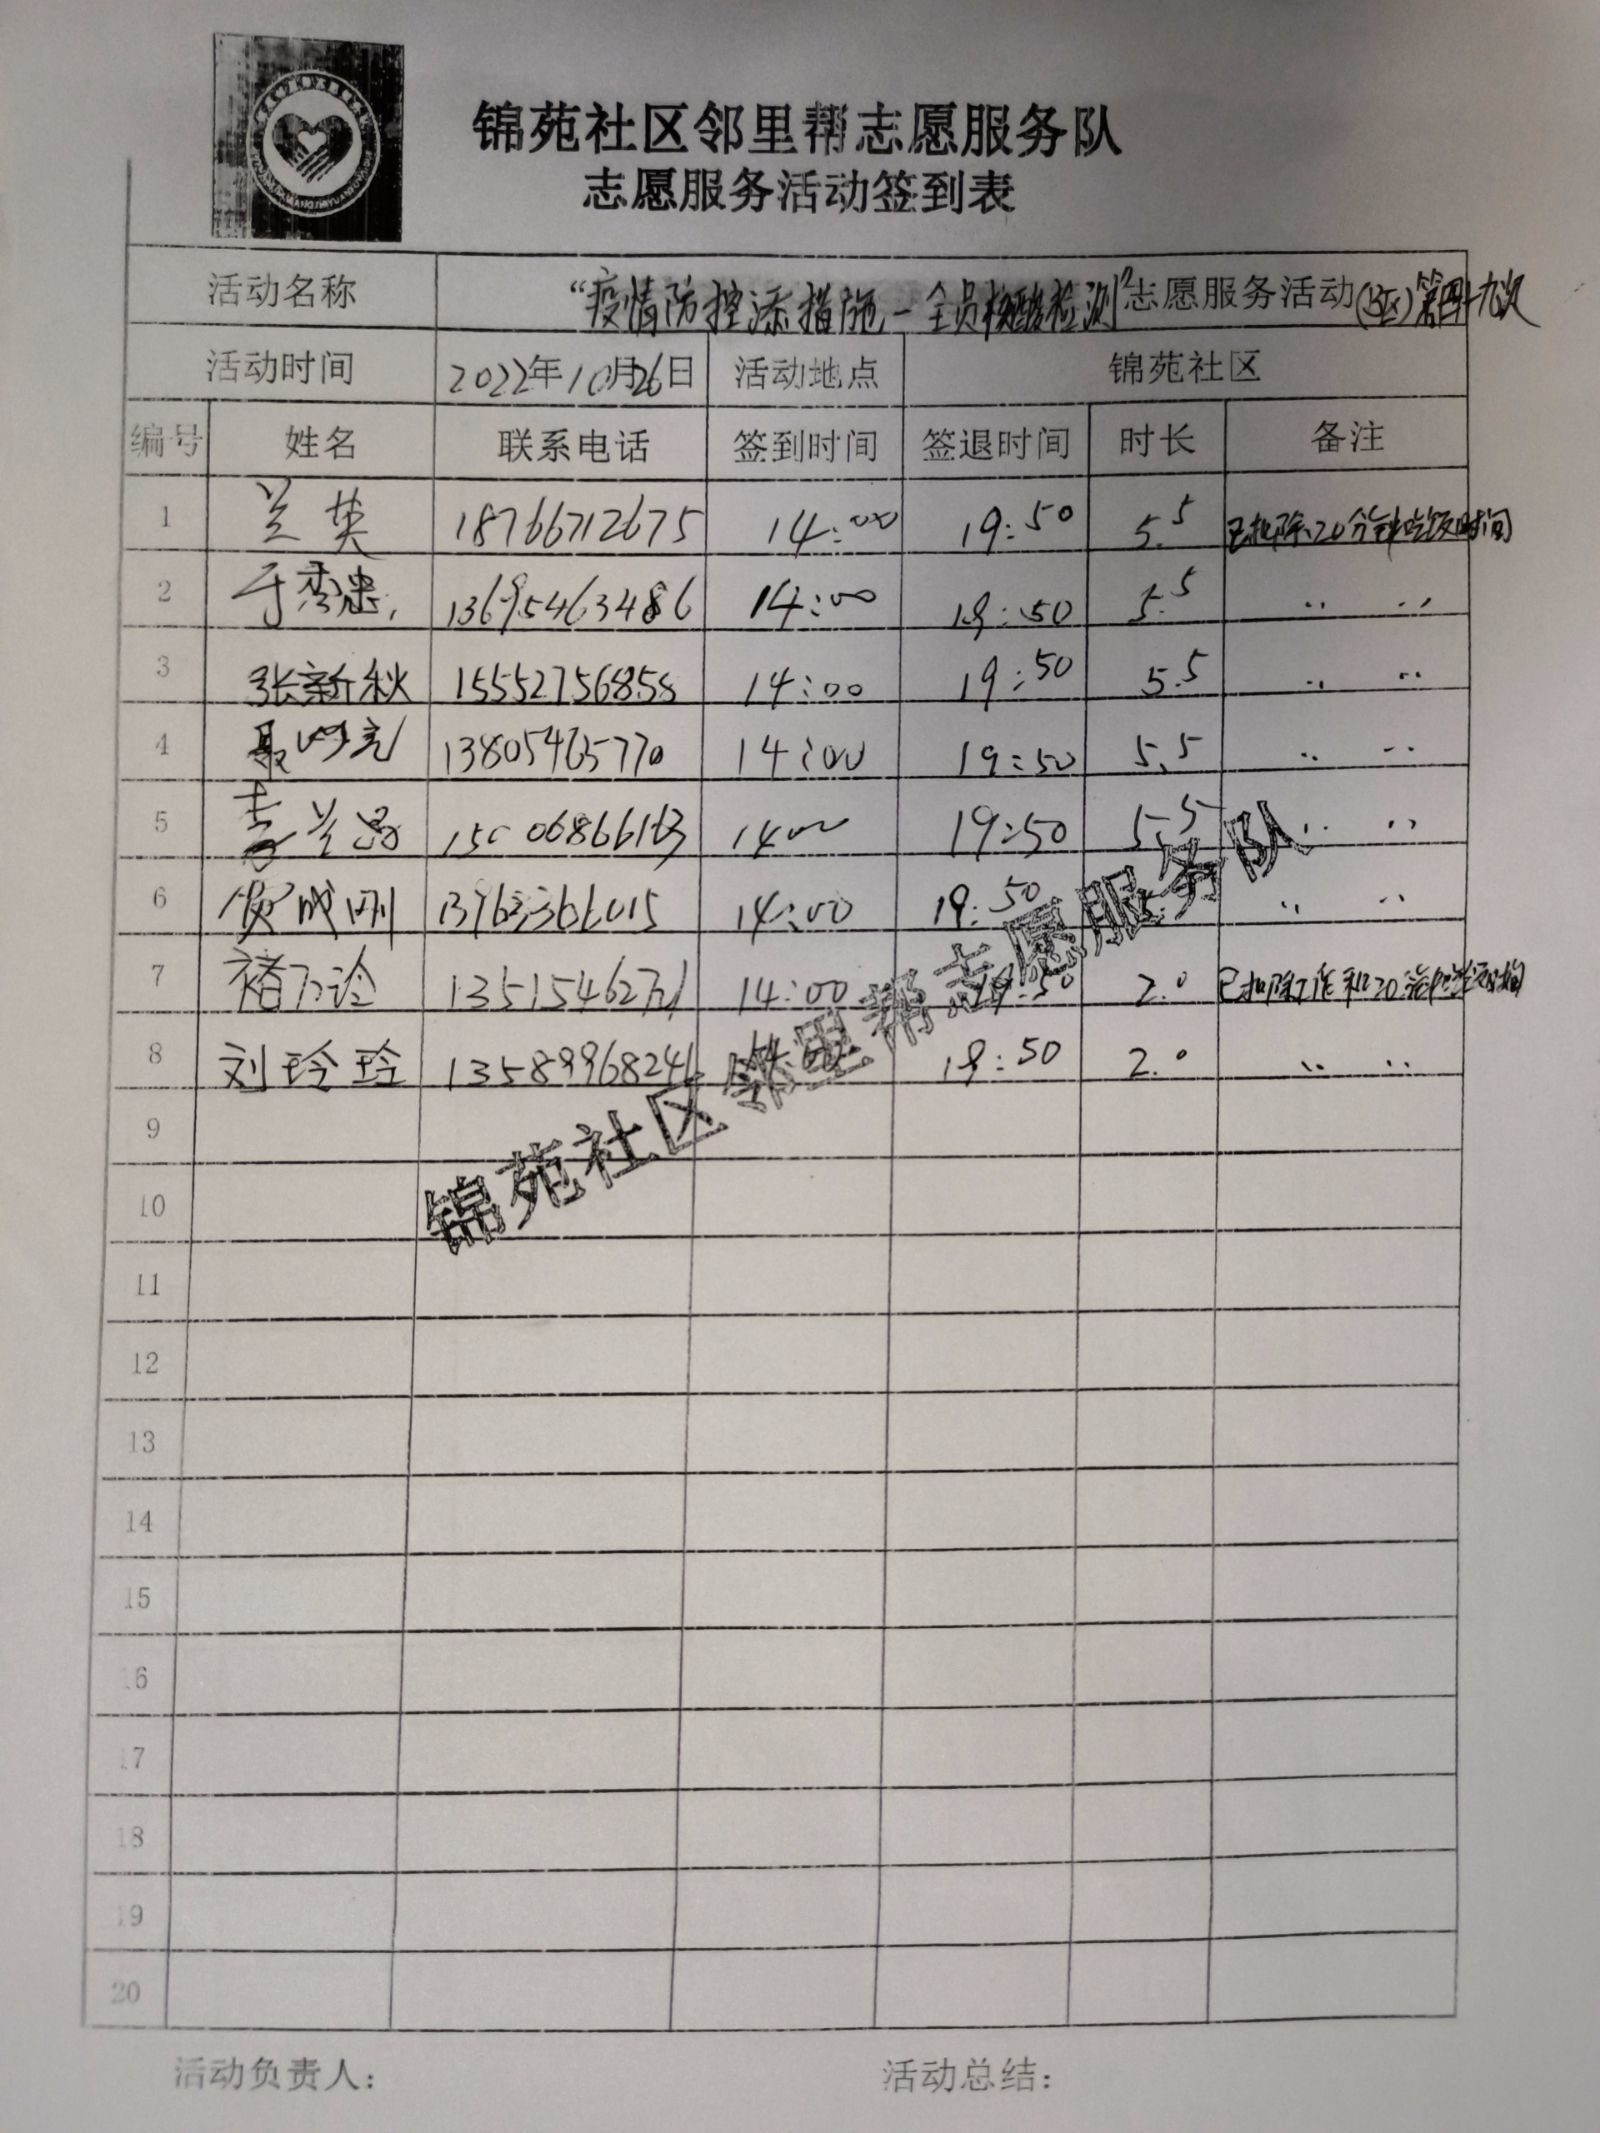 锦苑社区邻里帮志愿服务队
志愿服务活动签到表
活动名称 “疫情防控添措施-全员核酸检测”志愿服务活动(B区)第四十九次
活动时间 2022年10月26日 活动地点 锦苑社区
编号 姓名 联系电话 签到时间 签退时间 时长 备注
1 兰英 18766712675 14:00 19:50 5.5 已扣除20分钟吃饭时间
2 于秀忠 13695463486 14:00 19:50 5.5 .. ..
3 张新秋 15552756858 14:00 19:50 5.5 .. ..
4 13805465770 14:00 19:50 5.5 .. ..
5 14:00 19:50 5.5 .. ..
6 贺成刚 13963366015 14:00 19:50 .. ..
7 14:00 19:50 2.0 已扣除工作和20
8 刘玲玲 13589968246 19:50 2.0 .. ..
9
10
11
12
13
14
15
16
17
18
19
20
锦苑社区邻里帮志愿服务队
活动负责人: 活动总结: